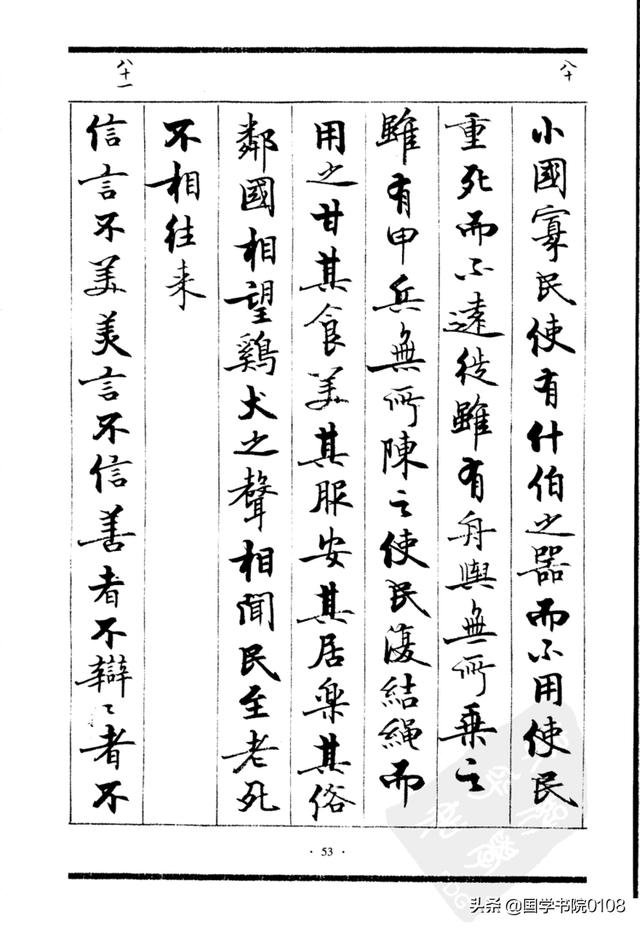 八十
小國寡民使有什伯之器而不用使民
重死而不遠徙雖有舟輿無所乗之
雖有甲兵無所陳之使民復結繩而
用之甘其食美其服安其居樂其俗
鄰國相望鷄犬之聲相聞民至老死
不相往来
八十一
信言不美美言不信善者不辯〻者不
· 53 ·
头条 @国学书院0108